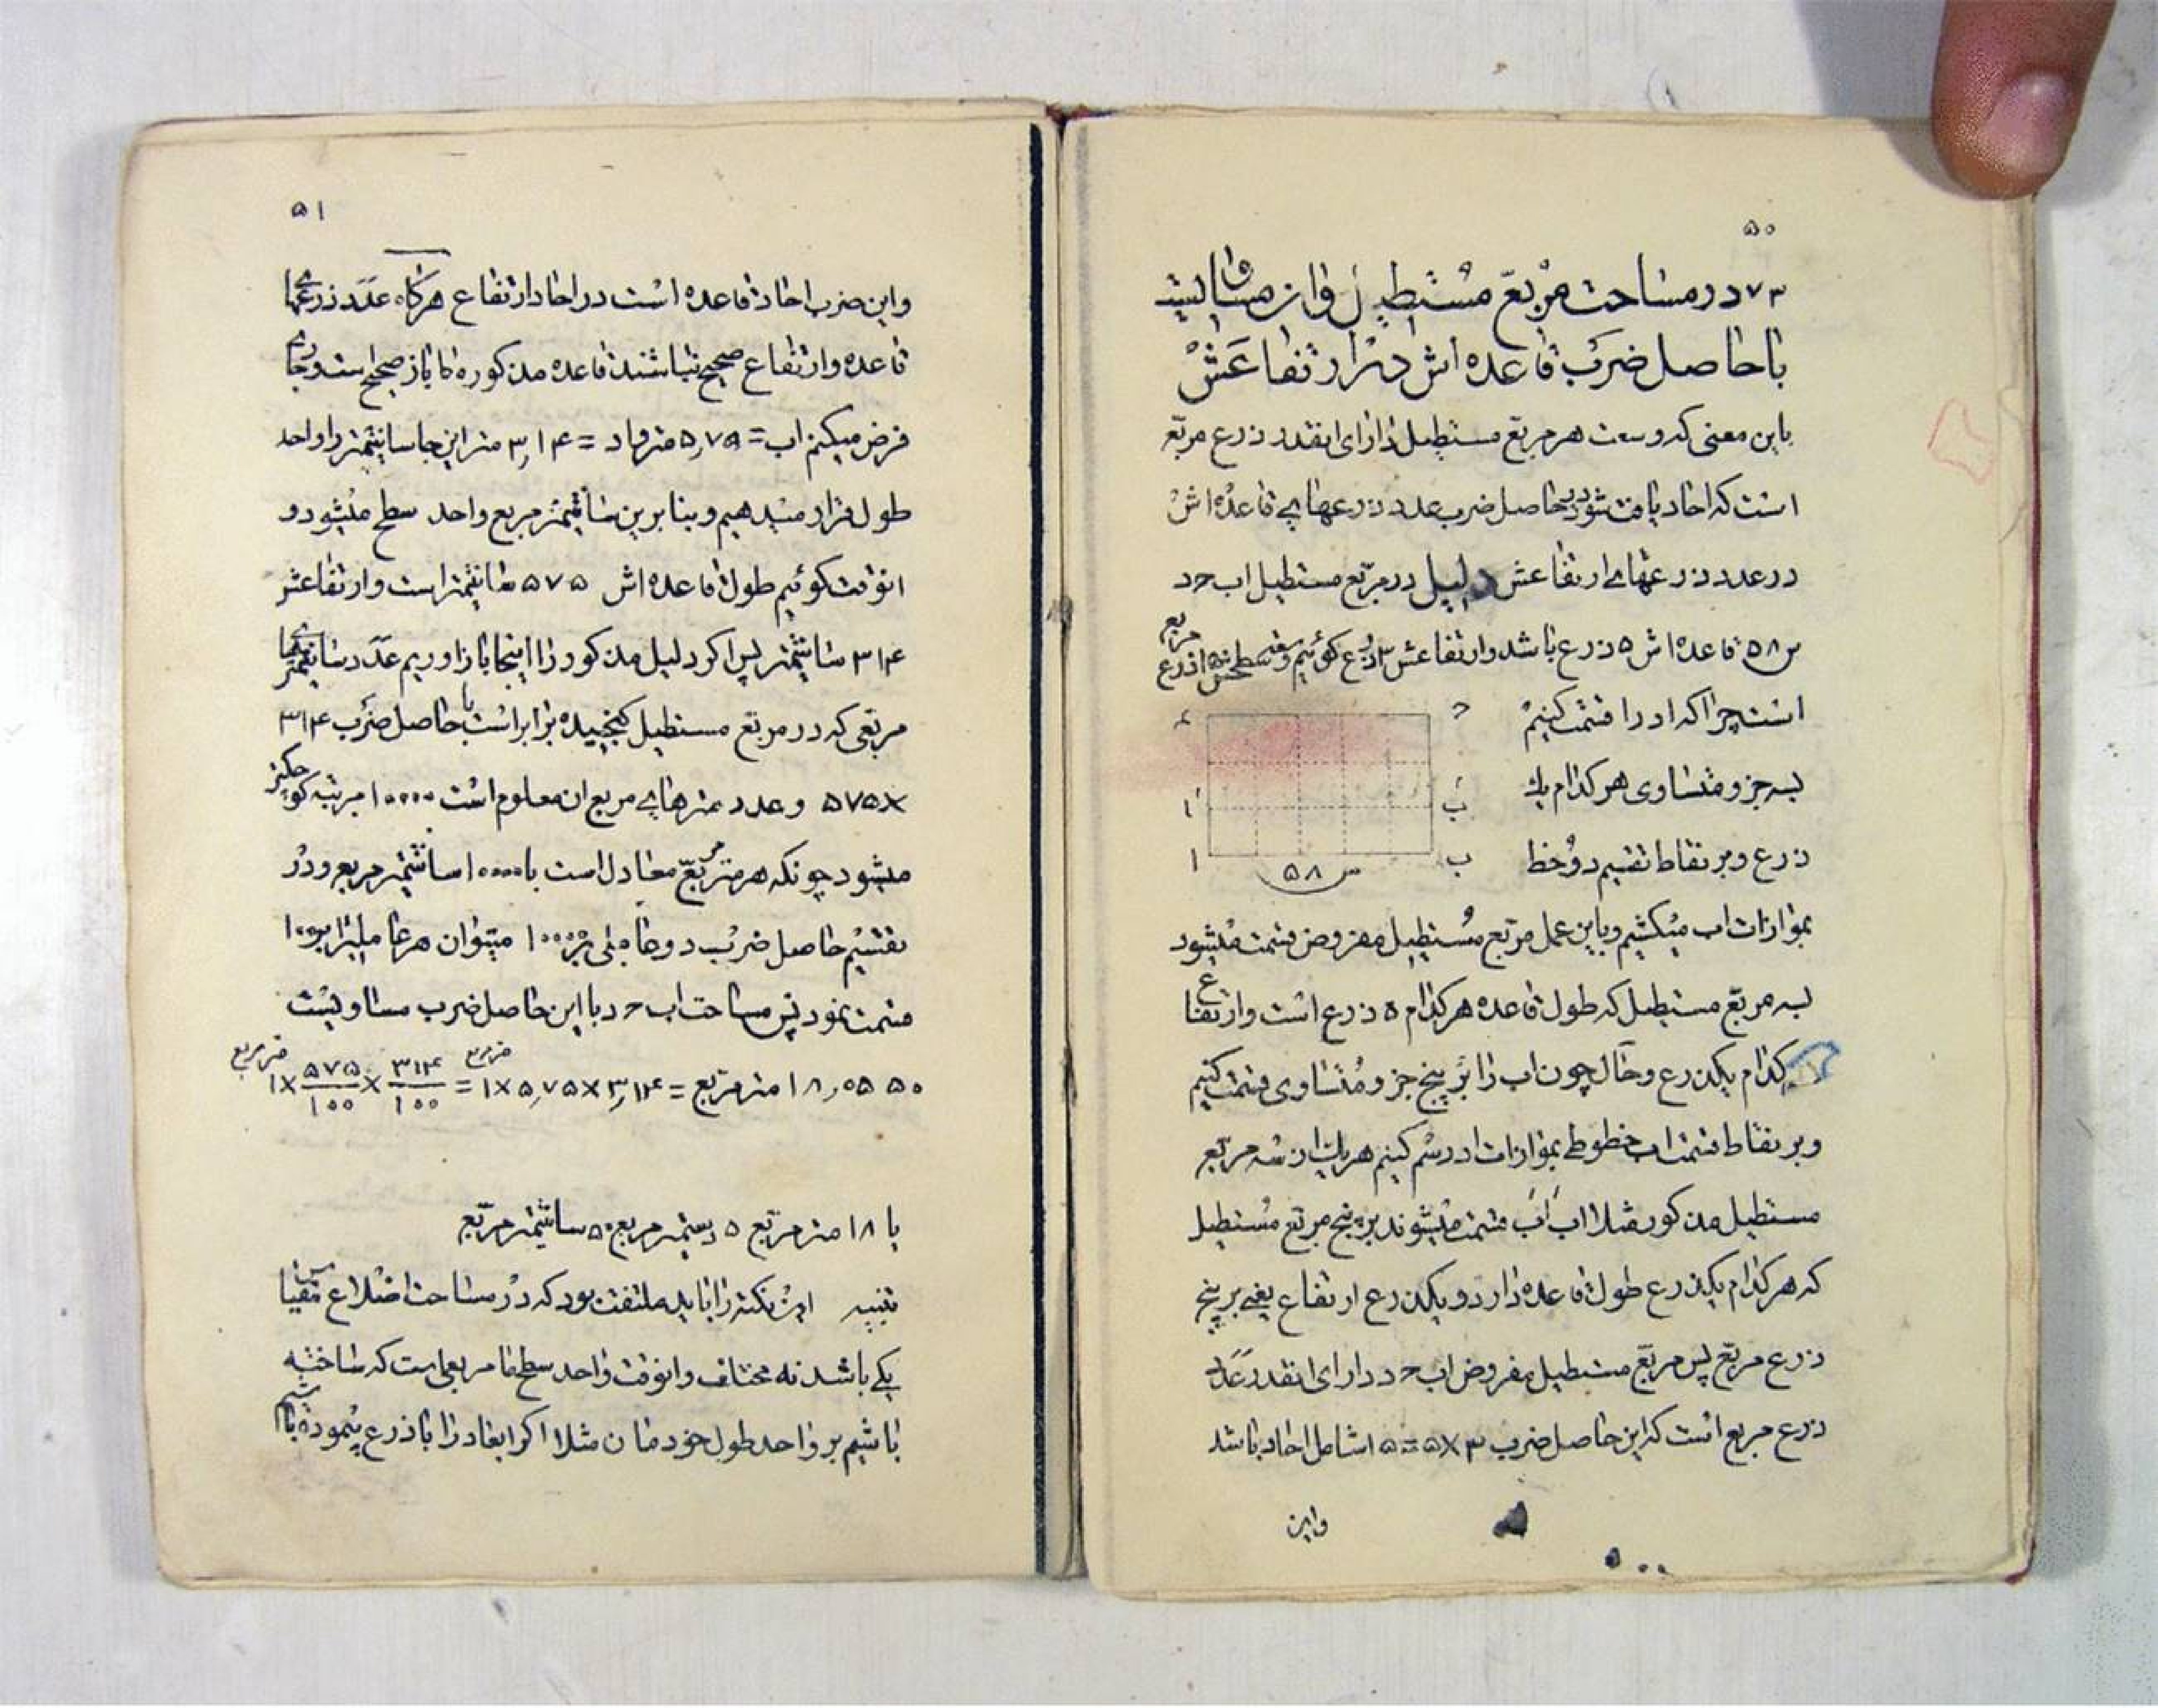 ۵۰
۷۳ در مساحت مربع مستطیل و ان مساویست
با حاصل ضرب قاعده اش در ارتفاعش
باین معنی که وسعت هر مربع مستطیل دارای انقدر ذرع مربع
است که احاد یافت شود در حاصل ضرب عدد ذرعهای قاعده اش
در عدد ذرعهای ارتفاعش دلیل در مربع مستطیل اب حد
س ۵۸ قاعده اش ۵ ذرع باشد و ارتفاعش ۳ ذرع کوئیم وسعت سطحش ۱۵ ذرع مربع
است چرا که اد را قسمت کنیم
بسه جزو متساوی هر کدام یك
ذرع و بر نقاط تقسیم دو خط
ح
ب
ب
ا
ا
س ۵۸
بموازات اب میکشیم و باین عمل مربع مستطیل مفروض قسمت میشود
بسه مربع مستطیل که طول قاعده هر کدام ۵ ذرع است و ارتفاع
کدام یکذرع و حال چون اب را بر پنج جزو متساوی قسمت کنیم
و بر نقاط قسمت اب خطوطی بموازات اد رسم کنیم هر یك از سه مربع
مستطیل مذکور مثلا اب اَبَ قسمت میشوند بر پنج مربع مستطیل
که هر کدام یکذرع طول قاعده دارد و یکذرع ارتفاع یعنی بر پنج
ذرع مربع پس مربع مستطیل مفروض اب حد دارای انقدر عدد
ذرع مربع است که این حاصل ضرب ۳×۵=۱۵ شامل احاد باشد
واین
۵۱
واین ضرب احاد قاعده است در احاد ارتفاع هرکاه عدد ذرعهای
قاعده و ارتفاع صحیح نباشند قاعده مذکوره ما باز صحیح است و جاری
فرض میکنم اب = ۵٫۷۵ متر و اد = ۳٫۱۴ متر این جا سانتیمتر را واحد
طول قرار میدهیم و بنابرین سانتیمتر مربع واحد سطح میشود و
انوقت کوئیم طول قاعده اش ۵۷۵ سانتیمتر است و ارتفاعش
۳۱۴ سانتیمتر پس اکر دلیل مذکور را اینجا باز اوریم عدد سانتیمترهای
مربعی که در مربع مستطیل کنجیده برابر است با حاصل ضرب ۳۱۴
×۵۷۵ و عدد مترهای مربع ان معلوم است ۱۰۰۰۰ مرتبه کوچکتر
میشود چونکه هر متر مربع معادل است با ۱۰۰۰۰ سانتیمتر مربع و در
تقسیم حاصل ضرب دو عاملی بر ۱۰۰۰۰ میتوان هر عاملیرا بر ۱۰۰
قسمت نمود پس مساحت اب حد با این حاصل ضرب مساویست
۱۸٫۰۵۵۰ متر مربع = ۱×۵٫۷۵×۳٫۱۴ متر مربع = ۳۱۴/۱۰۰ × ۵۷۵/۱۰۰ ×۱ متر مربع
یا ۱۸ متر مربع ۵ دسیمتر مربع ۵۰ سانتیمتر مربع
تنبیه این نکته را باید ملتفت بود که در مساحت اضلاع مقیاس
یکی باشد نه مختلف و انوقت واحد سطح ما مربعی است که ساخته
باشیم بر واحد طول خودمان مثلا اکر ابعاد را با ذرع پیموده باشیم